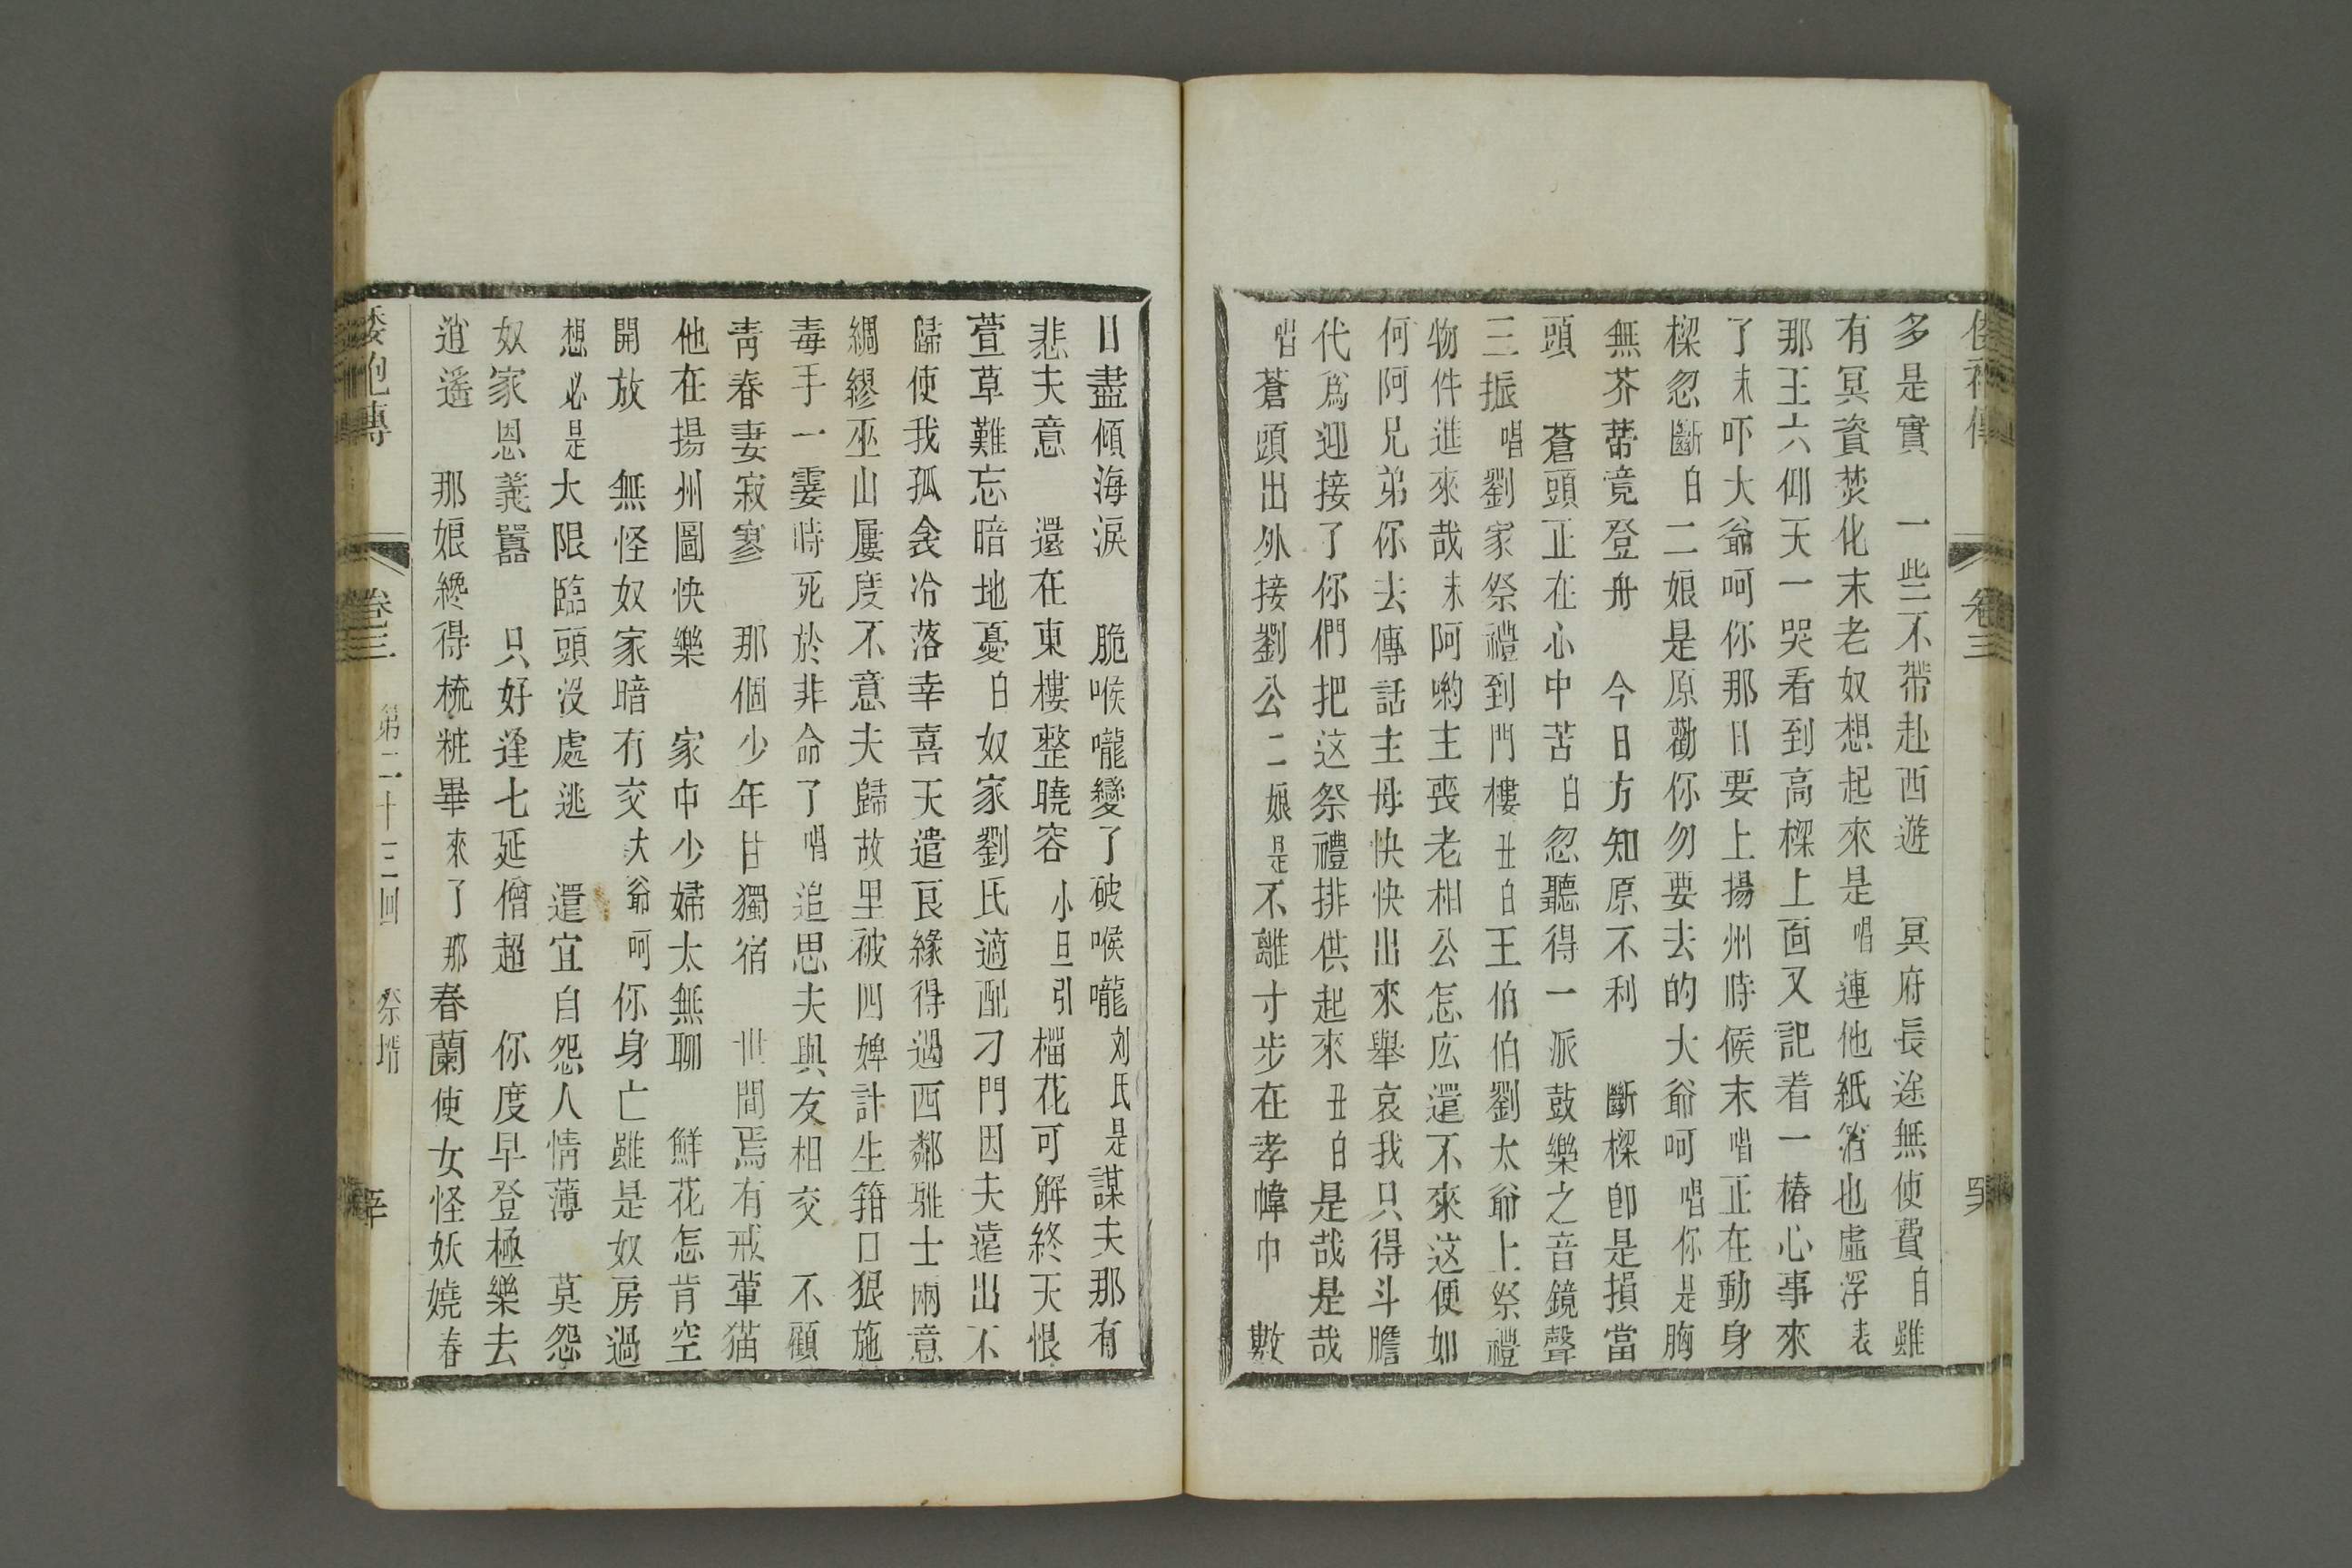 多是實　一些不帶赴西遊　冥府長途無使費白雖
有冥資焚化末老奴想起來是唱連他紙箔也虛浮表
那王六仰天一哭看到高樑上面又記着一樁心事來
了末吓大爺呵你那日要上揚州時候末唱正在動身
樑忽斷白二娘是原勸你勿要去的大爺呵唱你是胸
無芥蒂竟登舟　今日方知原不利　斷樑卽是損當
頭　蒼頭正在心中苦白忽聽得一派鼓樂之音鏡聲
三振唱劉家祭禮到門樓丑白王伯伯劉太爺上祭禮
物件進來哉末阿喲主喪老相公怎庅還不來这便如
何阿兄弟你去傳話主母快快出來舉哀我只得斗膽
代爲迎接了你們把这祭禮排供起來丑白是哉是哉
唱蒼頭出外接劉公二娘是不離寸步在孝幃巾　數
卷三
日盡傾海淚　脆喉嚨變了破喉嚨刘氏是謀夫那有
悲夫意　還在東樓整曉容小旦引榴花可解終天恨
萱草難忘暗地憂白奴家劉氏適配刁門因夫遠出不
歸使我孤衾冷落幸喜天遣良緣得遇西鄰雅士兩意
綢繆巫山屢度不意夫歸故里被四婢計生箝口狠施
毒手一霎時死於非命了唱追思夫與友相交　不顧
靑春妻寂寥　那個少年甘獨宿　世間焉有戒葷猫
他在揚州圖快樂　家中少婦太無聊　鮮花怎肯空
開放　無怪奴家暗有交大爺呵你身亡雖是奴房過
想必是大限臨頭沒處逃　還宜自怨人情薄　莫怨
奴家恩義囂　只好逢七延僧超　你度早登極樂去
逍遙　那娘纔得梳粧畢來了那春蘭使女怪妖嬈春
倭袍傳　卷三　第二十三回　祭壻